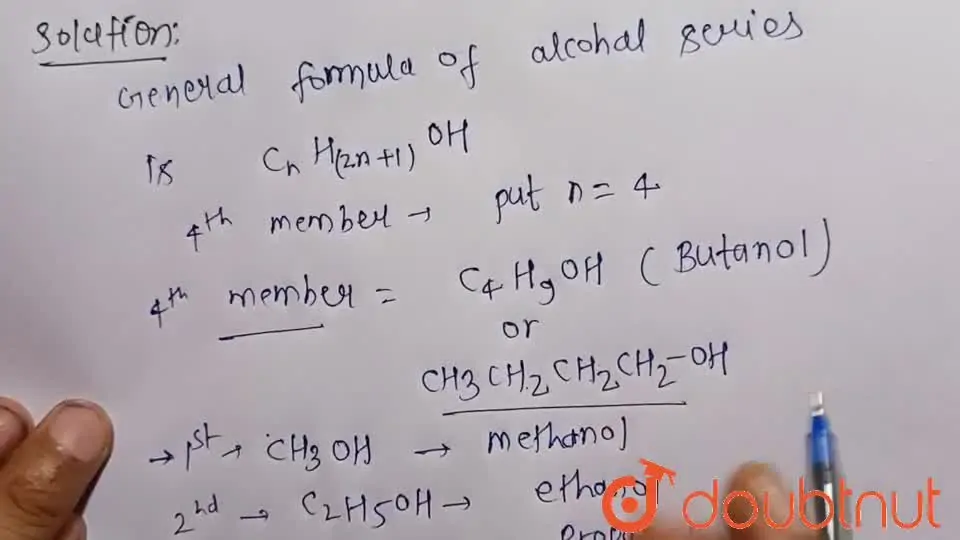 Solution:
General formula of alcohal series
is CnH(2n+1)OH
4th member → put n = 4
4th member = C4H9OH (Butanol)
or
CH3CH2CH2CH2-OH
→ 1st → CH3OH → methanol
2nd → C2H5OH → ethanol
doubtnut